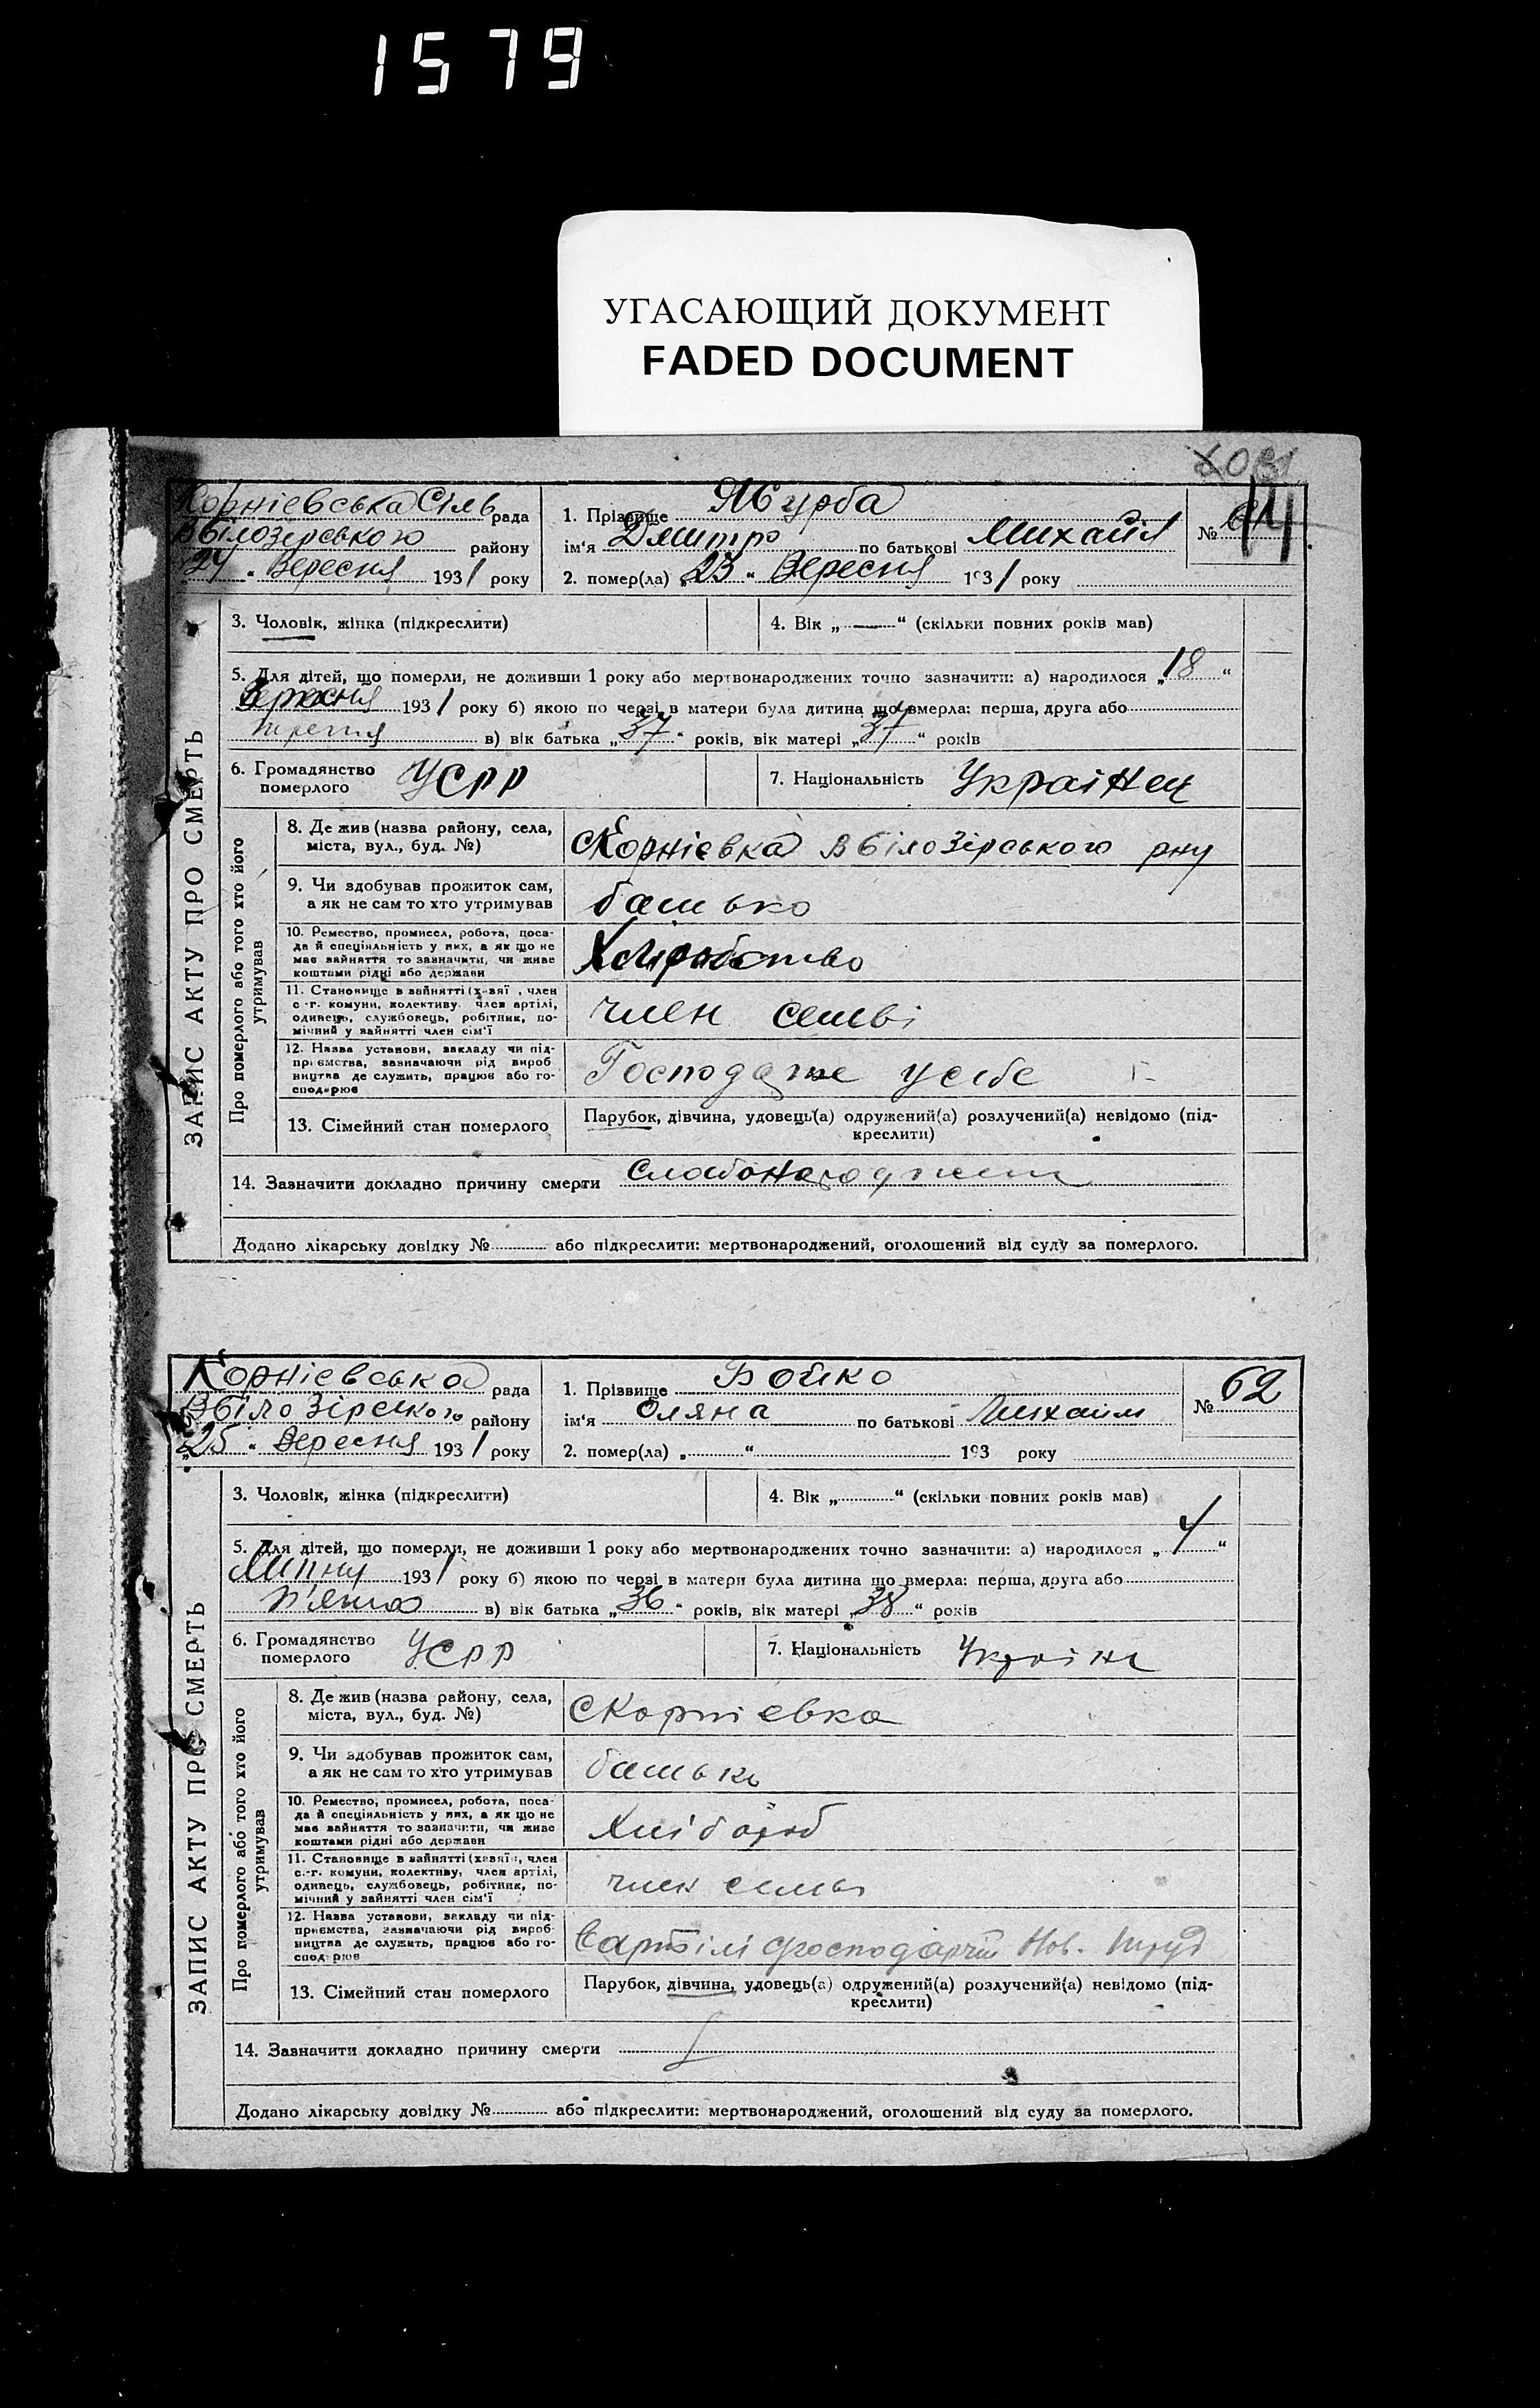 1579
УГАСАЮЩИЙ ДОКУМЕНТ
FADED DOCUMENT
Корніевська Сіль рада
Вбілозерського району
"24" Вересня 1931 року
1. Прізвище Журба
ім'я Дмитро по батькові Михайл
2. помер(ла) "23" Вересня 1931 року
№ 61
3. Чоловік, жінка (підкреслити)
4. Вік „—“ (скільки повних років мав)
5. Для дітей, що померли, не доживши 1 року або мертвонароджених точно зазначити: а) народилося „18“
Вересня 1931 року б) якою по черзі в матери була дитина що вмерла: перша, друга або
третя в) вік батька „37“ років, вік матері „37“ років
6. Громадянство померлого УСРР
7. Національність Украінец
ЗАПИС АКТУ ПРО СМЕРТЬ
Про померлого або того хто його утримував
8. Де жив (назва району, села, міста, вул., буд. №)
с Корніевка Вбілозірського рну
9. Чи здобував прожиток сам, а як не сам то хто утримував
батько
10. Ремество, промисел, робота, посада й спеціяльність у них, а як що не має зайняття то зазначити, чи живе коштами рідні або держави
11. Становище в зайнятті (хазяї, член с.-г. комуни, колективу, член артілі, одинець, службовець, робітник, помічний у зайнятті член сім'ї
член семьі
12. Назва установи, закладу чи підприємства, зазначаючи рід виробництва де служить, працює або господарює
Господарже усебе
13. Сімейний стан померлого
Парубок, дівчина, удовець(а) одружений(а) розлучений(а) невідомо (підкреслити)
14. Зазначити докладно причину смерти
Додано лікарську довідку № або підкреслити: мертвонароджений, оголошений від суду за померлого.
Корніевська рада
Вбілозірського району
"25" Вересня 1931 року
1. Прізвище Бойко
ім'я Оляна по батькові Михайл
2. помер(ла) „ “ 193 року
№ 62
3. Чоловік, жінка (підкреслити)
4. Вік „ “ (скільки повних років мав)
5. Для дітей, що померли, не доживши 1 року або мертвонароджених точно зазначити: а) народилося „4“
Липня 1931 року б) якою по черзі в матери була дитина що вмерла: перша, друга або
п'ята в) вік батька „36“ років, вік матері „38“ років
6. Громадянство померлого УСРР
7. Національність
ЗАПИС АКТУ ПРО СМЕРТЬ
Про померлого або того хто його утримував
8. Де жив (назва району, села, міста, вул., буд. №)
с Корніевка
9. Чи здобував прожиток сам, а як не сам то хто утримував
батько
10. Ремество, промисел, робота, посада й спеціяльність у них, а як що не має зайняття то зазначити, чи живе коштами рідні або держави
Хлібороб
11. Становище в зайнятті (хазяї, член с.-г. комуни, колективу, член артілі, одинець, службовець, робітник, помічний у зайнятті член сім'ї
член семьі
12. Назва установи, закладу чи підприємства, зазначаючи рід виробництва де служить, працює або господарює
Нов. труд
13. Сімейний стан померлого
Парубок, дівчина, удовець(а) одружений(а) розлучений(а) невідомо (підкреслити)
14. Зазначити докладно причину смерти
Додано лікарську довідку № або підкреслити: мертвонароджений, оголошений від суду за померлого.